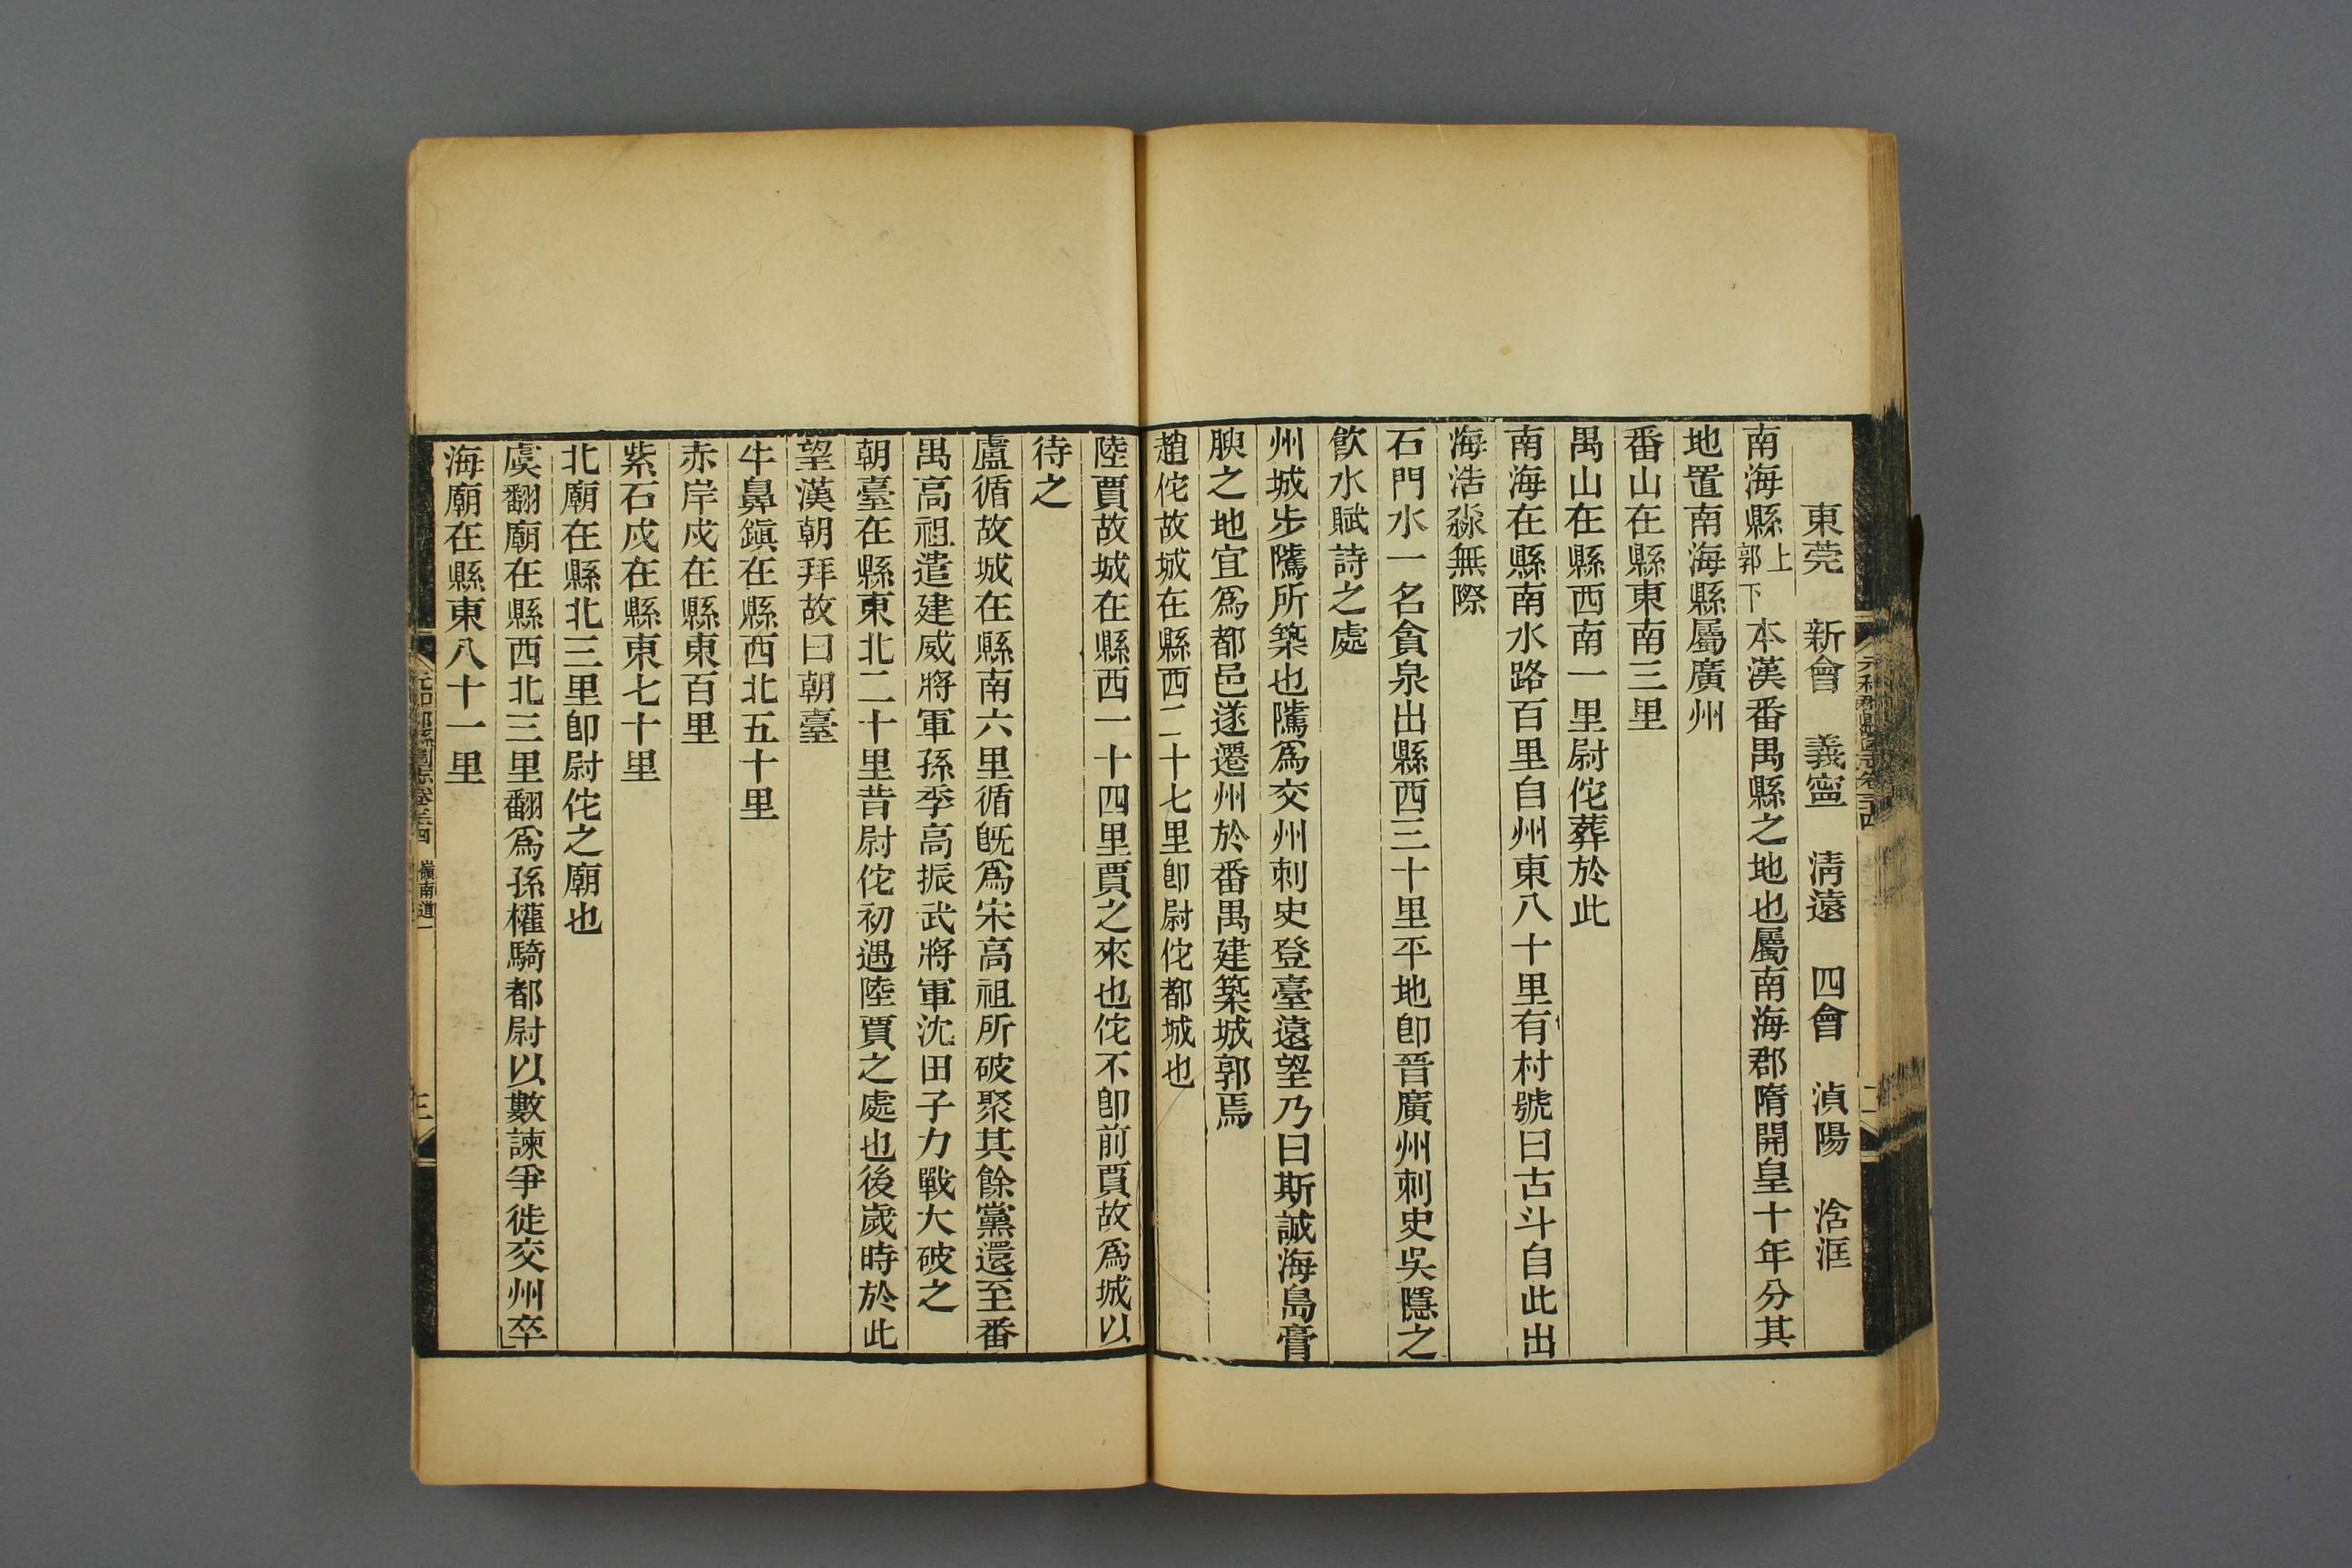 東莞　新會　義寧　淸遠　四會　湞陽　浛洭
南海縣上郭下　本漢番禺縣之地也屬南海郡隋開皇十年分其
地置南海縣屬廣州
番山在縣東南三里
禺山在縣西南一里尉佗葬於此
南海在縣南水路百里自州東八十里有村號曰古斗自此出
海浩淼無際
石門水一名貪泉出縣西三十里平地卽晉廣州刺史吳隱之
飮水賦詩之處
州城步隲所築也隲爲交州刺史登臺遠望乃曰斯誠海島膏
腴之地宜爲都邑遂遷州於番禺建築城郭焉
趙佗故城在縣西二十七里卽尉佗都城也
陸賈故城在縣西一十四里賈之來也佗不卽前賈故爲城以
待之
盧循故城在縣南六里循旣爲宋高祖所破聚其餘黨還至番
禺高祖遣建威將軍孫季高振武將軍沈田子力戰大破之
朝臺在縣東北二十里昔尉佗初遇陸賈之處也後歲時於此
望漢朝拜故曰朝臺
牛鼻鎭在縣西北五十里
赤岸戍在縣東百里
紫石戍在縣東七十里
北廟在縣北三里卽尉佗之廟也
虞翻廟在縣西北三里翻爲孫權騎都尉以數諫爭徙交州卒
海廟在縣東八十一里
元和郡縣圖志卷三四　嶺南道一　三